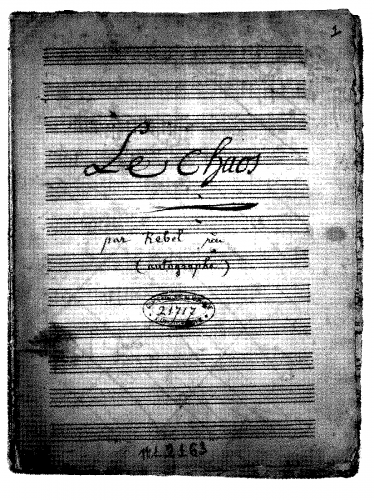 1
Le Chaos
par Rebel père
(autographe)
21717